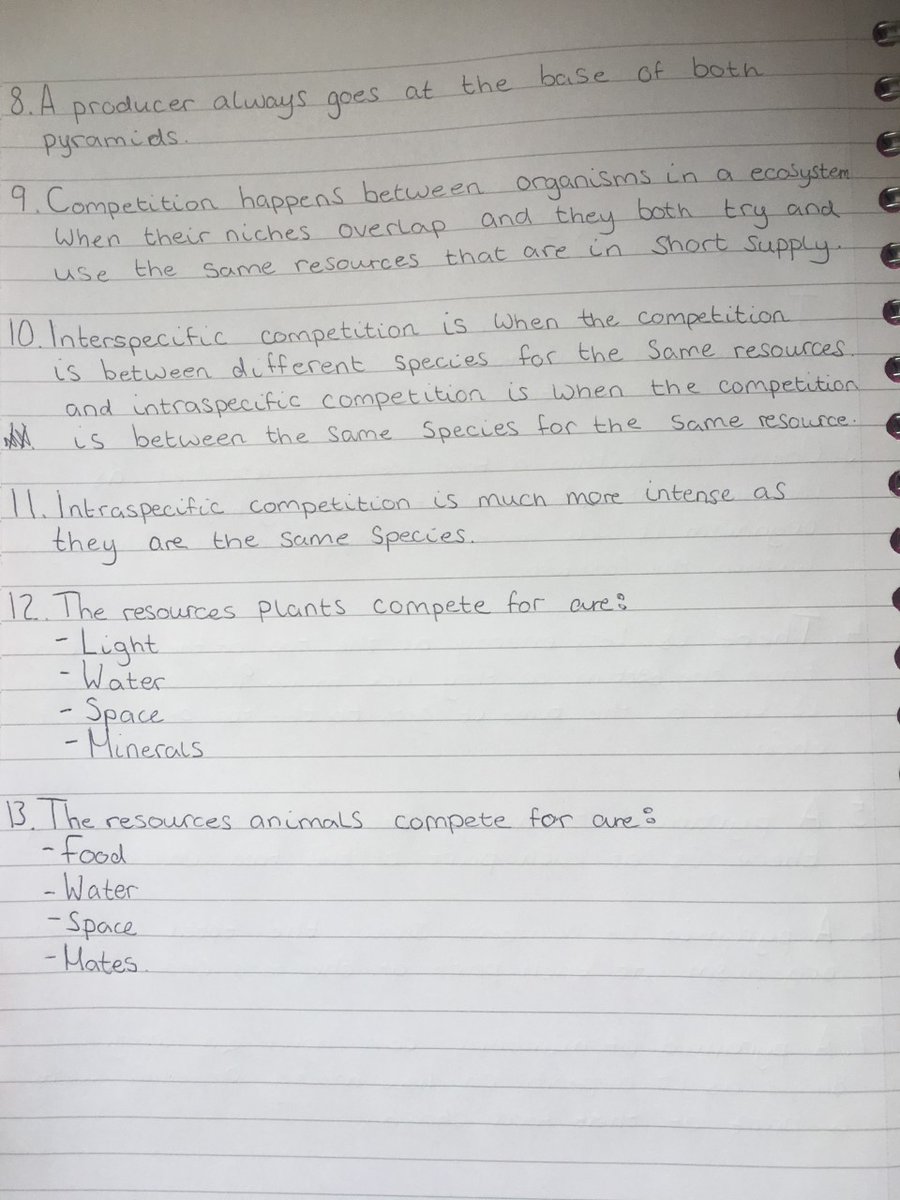 8. A producer always goes at the base of both
pyramids.
9. Competition happens between organisms in a ecosystem
When their niches overlap and they both try and
use the same resources that are in short supply.
10. Interspecific competition is when the competition
is between different species for the same resources.
and intraspecific competition is when the competition
is between the same species for the same resource.
11. Intraspecific competition is much more intense as
they are the same species.
12. The resources plants compete for are:
- Light
- Water
- Space
- Minerals
13. The resources animals compete for are:
- food
- Water
- Space
- Mates.